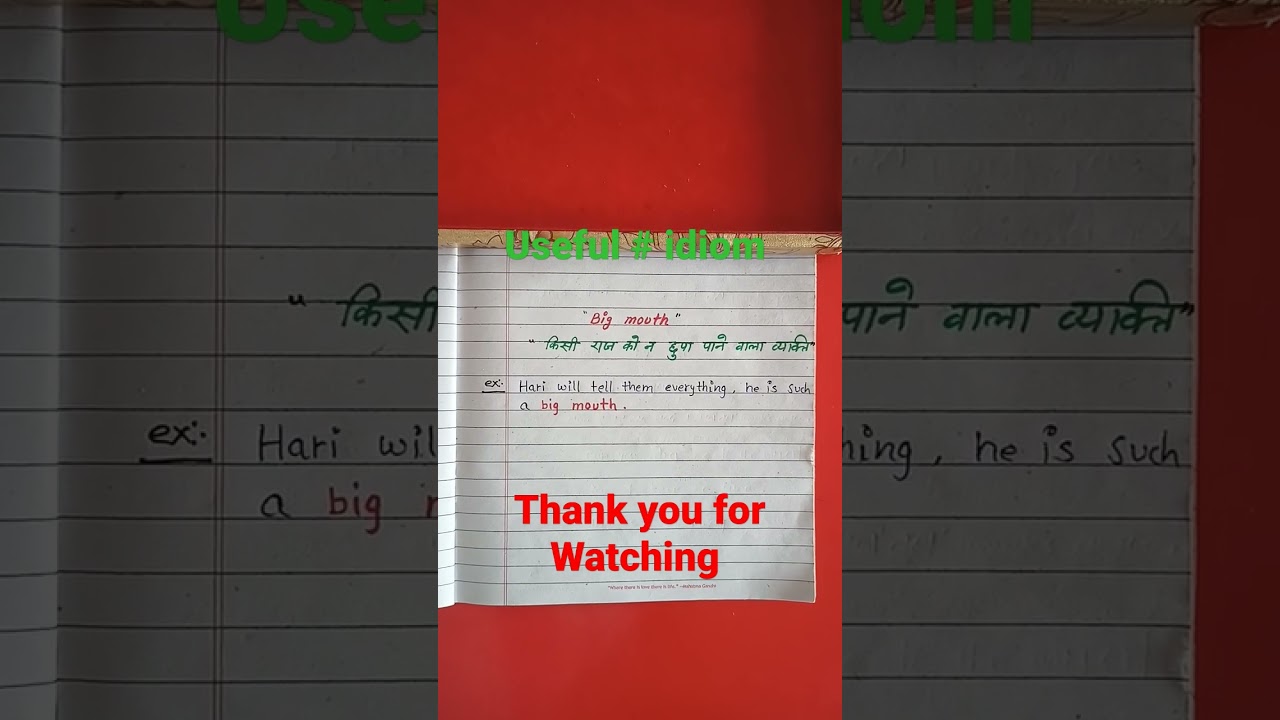 Useful # idiom
"Big mouth"
"किसी राज को न छुपा पाने वाला व्याक्ति"
ex:- Hari will tell them everything, he is such
a big mouth.
Thank you for
Watching
"Where there is love there is life." —Mahatma Gandhi